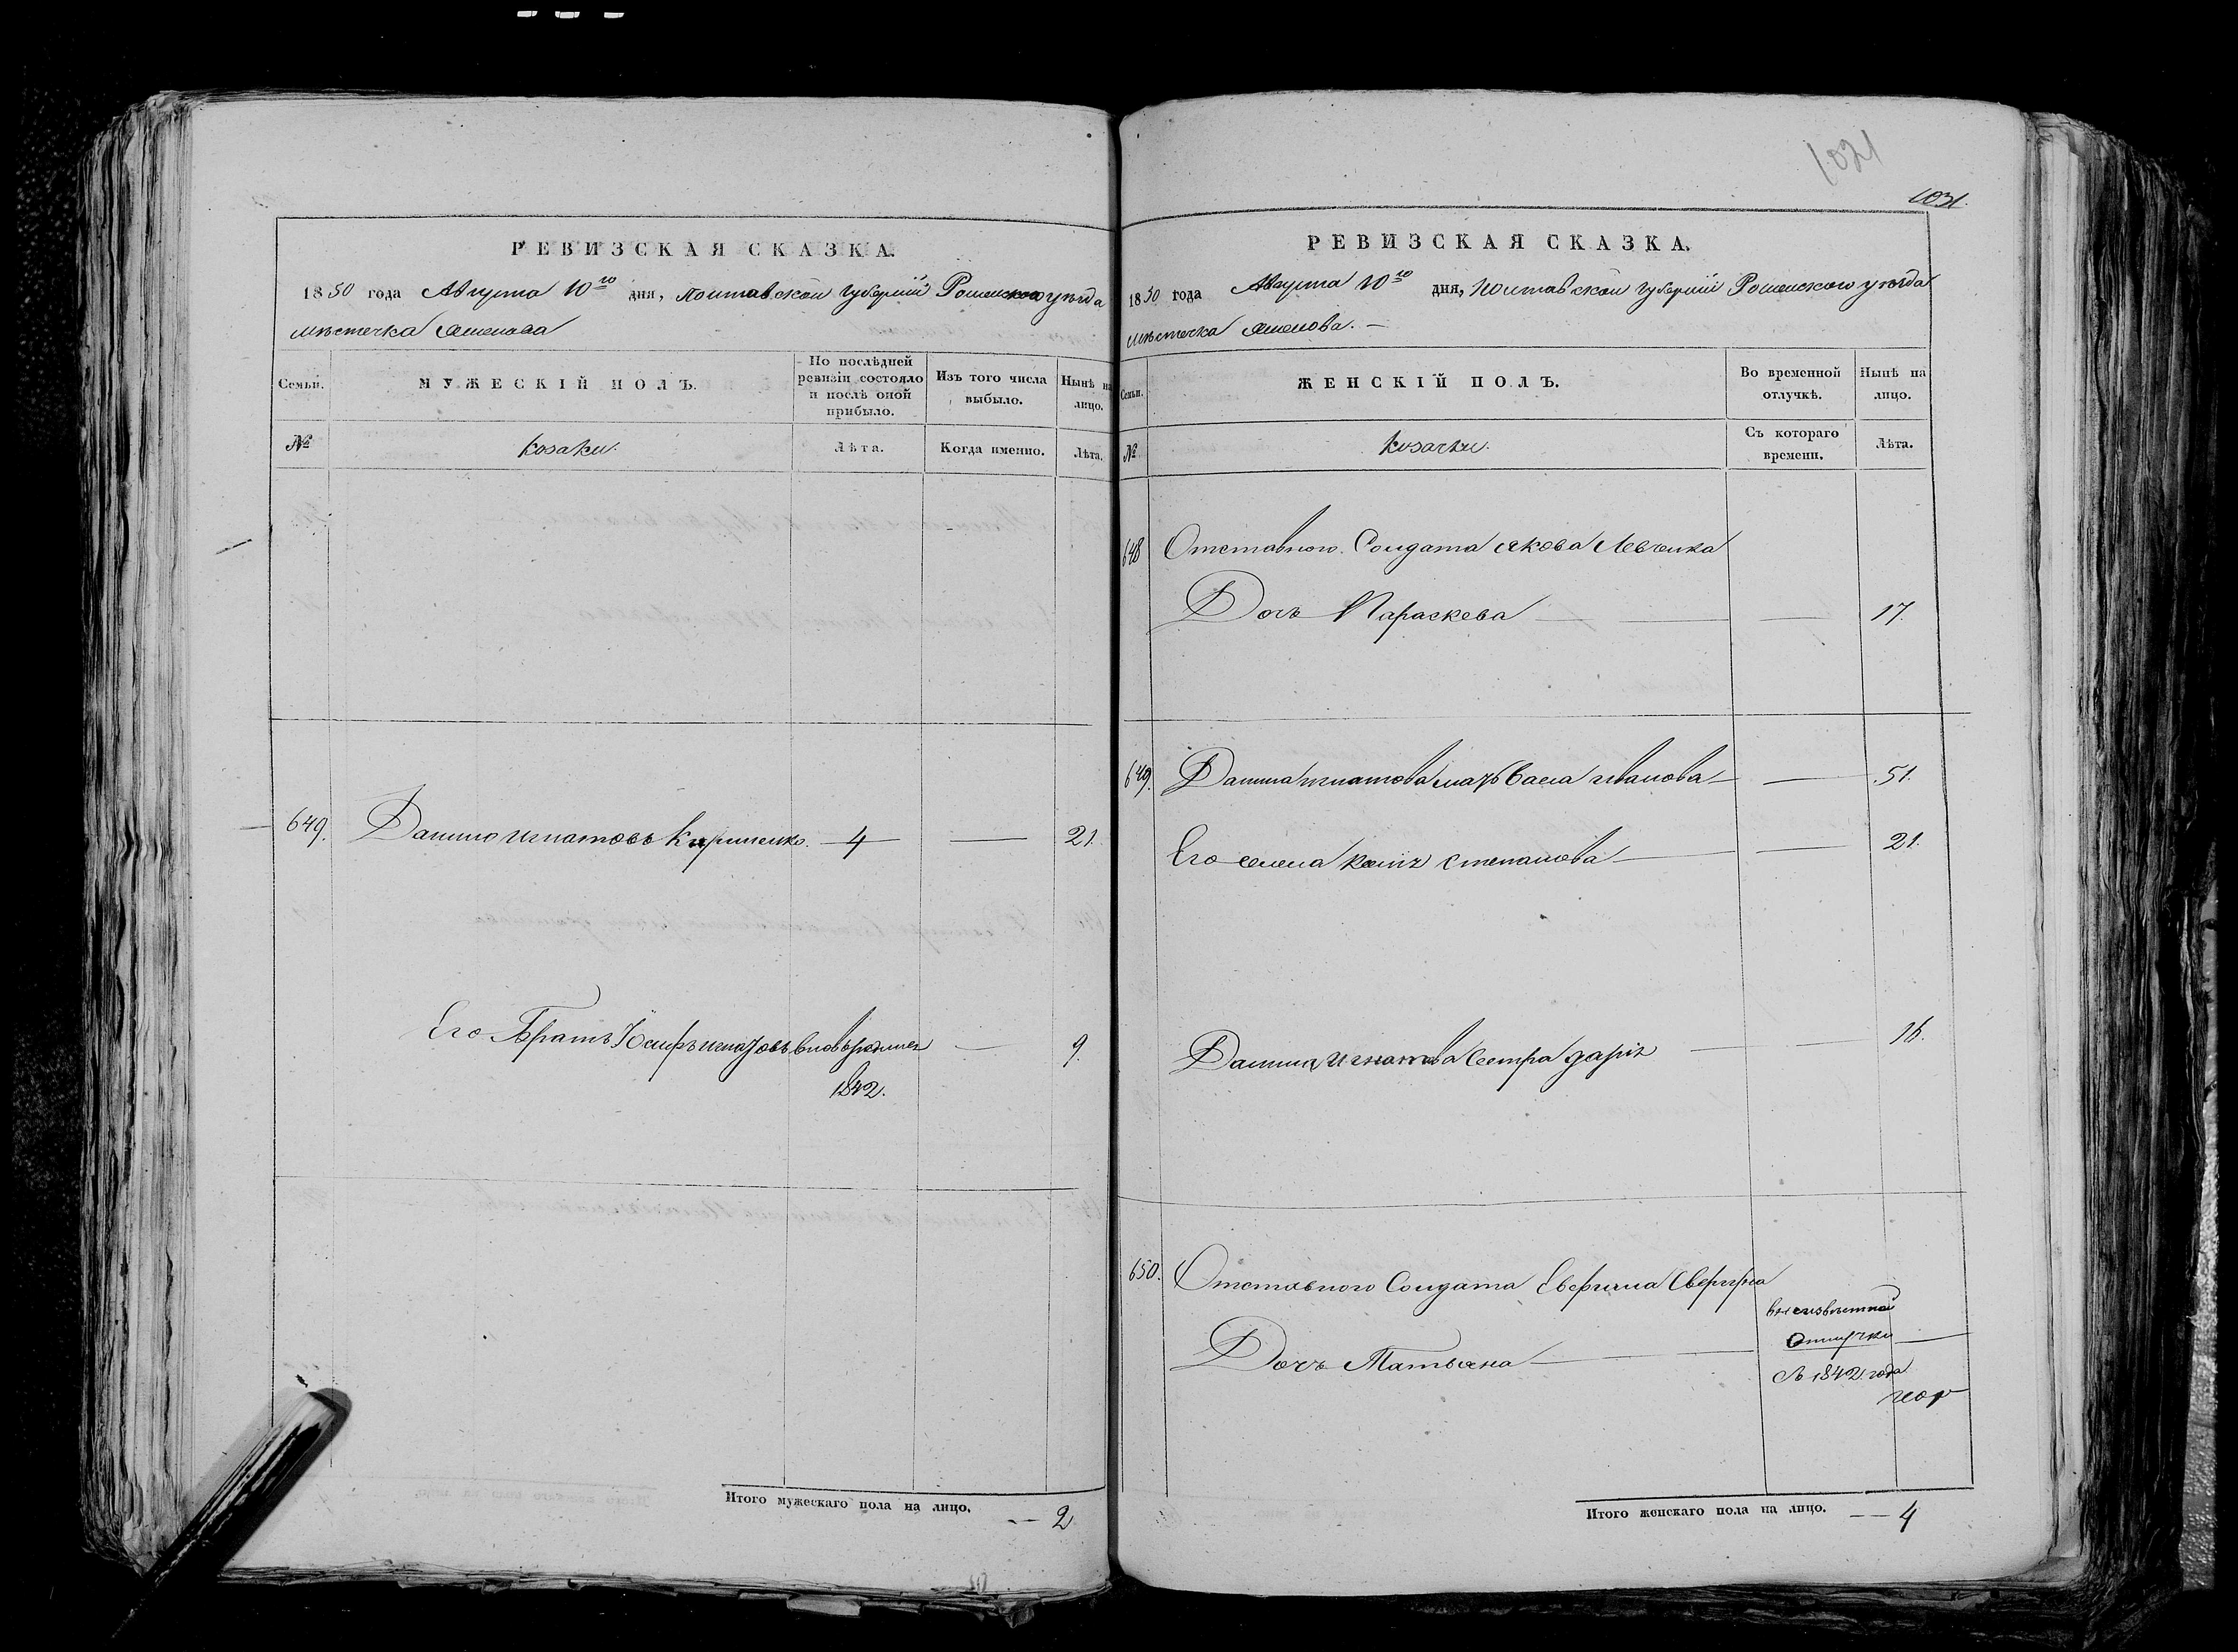 1021
1031.
РЕВИЗСКАЯ СКАЗКА.
1850 года Августа 10го дня, Полтавской губернии Роменского уѣзда
мѣстечка
Семьи.
МУЖЕСКІЙ ПОЛЪ.
По послѣдней ревизіи состояло и послѣ оной прибыло.
Изъ того числа выбыло.
Нынѣ на лицо.
№
козаки.
Лѣта.
Когда именно.
Лѣта.
649. Данило Игнатовъ Кириленко. 4 — 21.
Его Братъ Іосифъ Игнатовъ вновь рожденъ — 9.
1842.
Итого мужескаго пола на лицо. — 2
РЕВИЗСКАЯ СКАЗКА.
1850 года Августа 10го дня, Полтавской губернии Роменского уѣзда
мѣстечка
Семьи.
ЖЕНСКІЙ ПОЛЪ.
Во временной отлучкѣ.
Нынѣ на лицо.
№
козачки.
Съ котораго времени.
Лѣта.
648 Отставного Солдата Якова Левченка
Дочь Параскева — — 17.
649. Данила Игнатова мать Иванова — — 51.
Его жена Степанова — — 21.
Данила Игнатова Сестра Дарія — — 16.
650. Отставного Солдата
Отлучки
Дочь Татьяна —
Съ 1842 года
Итого женскаго пола на лицо. — 4